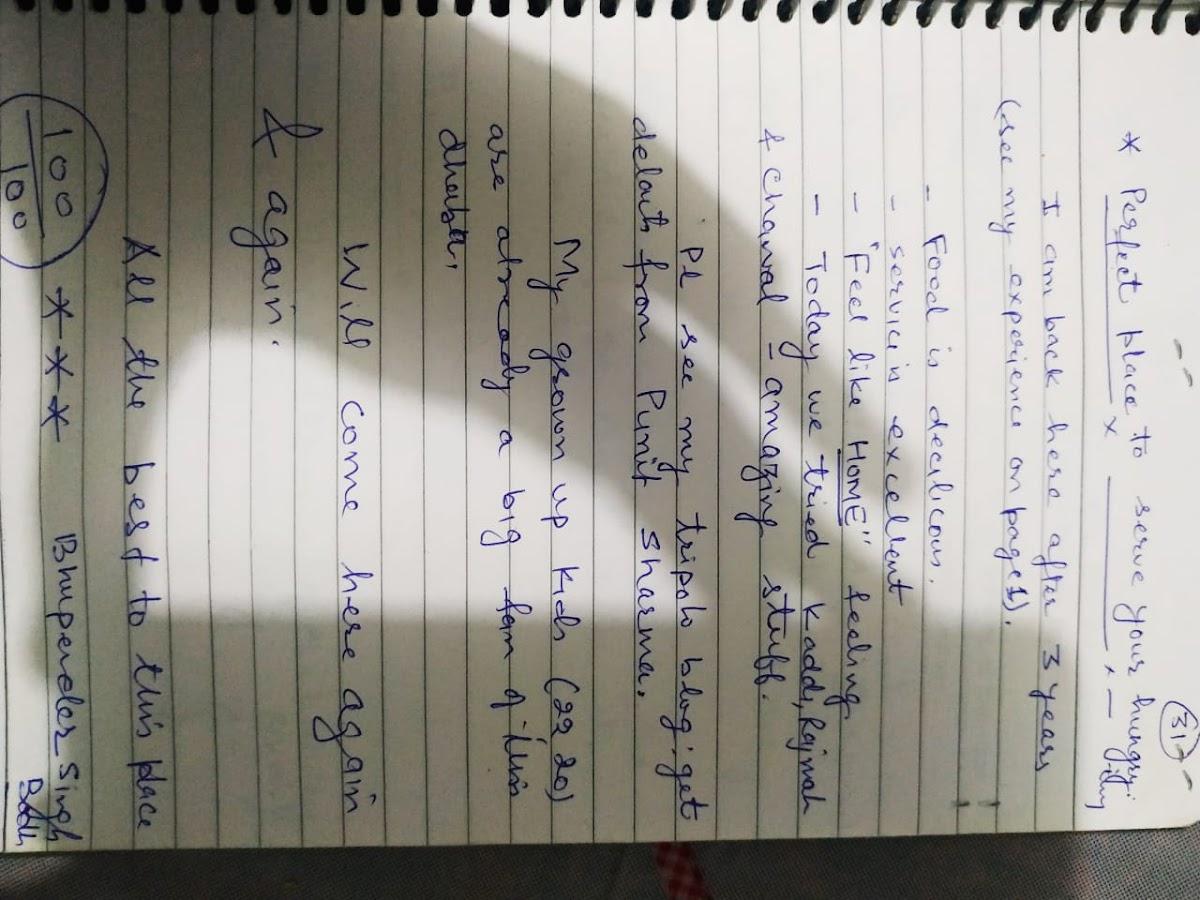 31
* Perfect place to serve your hungry
I am back here after 3 years
(see my experience on page 1).
- Food is decilicous.
- service is excellent
- "Feel like HOME" feeling
- Today we tried Kaddi, Rajmah
& Chawal - amazing stuff.
Pl see my tripoto blog; get
details from Punit Sharma.
My grown up kids (22 20)
are already a big fan of this
dhaba.
Will come here again
& again.
All the best to this place
100/100 * * * Bhupender Singh